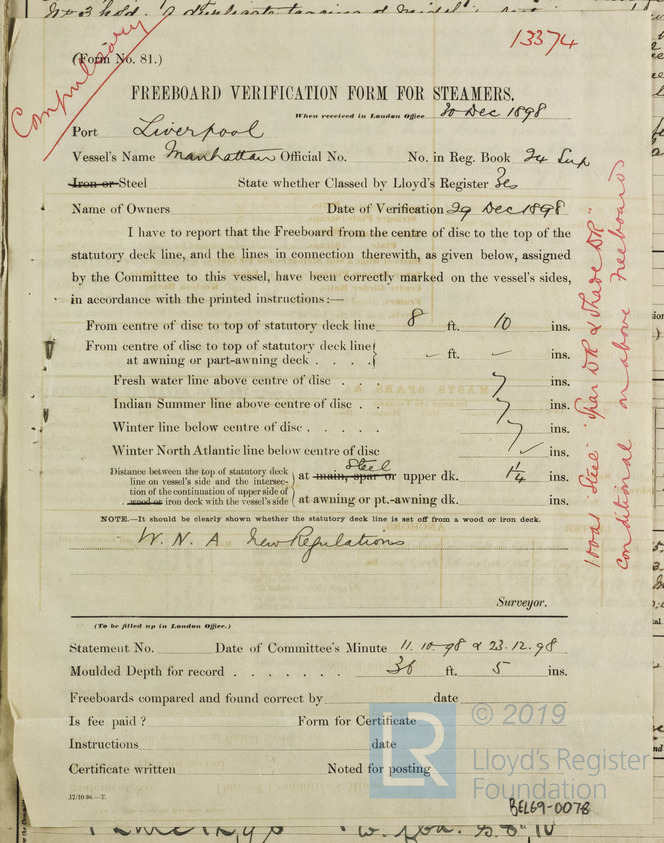 No 3 hold.
13374
Compulsory
(Form No. 81.)
FREEBOARD VERIFICATION FORM FOR STEAMERS.
When received in London Office 30 Dec 1898
Port Liverpool
Vessel's Name Manhattan Official No. No. in Reg. Book 24 Sup
Iron or Steel State whether Classed by Lloyd's Register Yes
Name of Owners Date of Verification 29 Dec 1898
I have to report that the Freeboard from the centre of disc to the top of the
statutory deck line, and the lines in connection therewith, as given below, assigned
by the Committee to this vessel, have been correctly marked on the vessel's sides,
in accordance with the printed instructions:—
From centre of disc to top of statutory deck line 8 ft. 10 ins.
From centre of disc to top of statutory deck line
at awning or part-awning deck . . . . – ft. – ins.
Fresh water line above centre of disc . . 7 ins.
Indian Summer line above centre of disc . . 7 ins.
Winter line below centre of disc . . . . . 7 ins.
Winter North Atlantic line below centre of disc ✓ ins.
Distance between the top of statutory deck
line on vessel's side and the intersec-
tion of the continuation of upper side of
wood or iron deck with the vessel's side
Steel
at main, spar or upper dk. 1¼ ins.
at awning or pt.-awning dk. ins.
NOTE.—It should be clearly shown whether the statutory deck line is set off from a wood or iron deck.
W. N. A New Regulations
Surveyor.
100A1 "Steel" "Spar DK & Shade DK"
conditional on above Freeboards
(To be filled up in London Office.)
Statement No. Date of Committee's Minute 11.10.98 & 23.12.98
Moulded Depth for record . . . . . . . 36 ft. 5 ins.
Freeboards compared and found correct by date
Is fee paid ? Form for Certificate
Instructions date
Certificate written Noted for posting
17/10/98.—T.
LR
© 2019
Lloyd's Register
Foundation
BEL69-0078